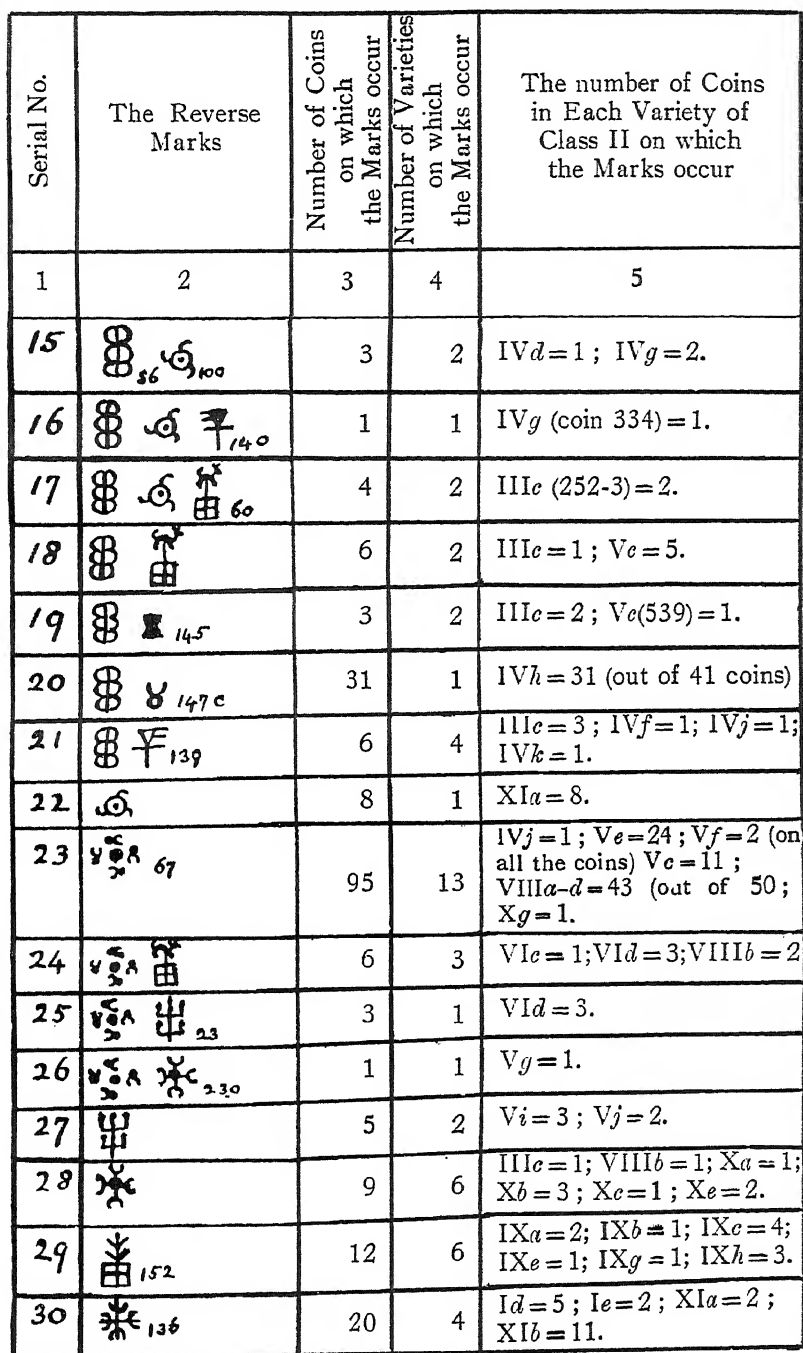 Serial No.
The Reverse
Marks
Number of Coins
on which
the Marks occur
Number of Varieties
on which
the Marks occur
The number of Coins
in Each Variety of
Class II on which
the Marks occur
1 2 3 4 5
15 56 100 3 2 IVd=1; IVg=2.
16 140 1 1 IVg (coin 334)=1.
17 60 4 2 IIIc (252-3)=2.
18 6 2 IIIc=1; Vc=5.
19 145 3 2 IIIc=2; Vc(539)=1.
20 147c 31 1 IVh=31 (out of 41 coins)
21 139 6 4 IIIc=3; IVf=1; IVj=1;
IVk=1.
22 8 1 XIa=8.
23 67 95 13 IVj=1; Ve=24; Vf=2 (on
all the coins) Vc=11;
VIIIa-d=43 (out of 50;
Xg=1.
24 6 3 VIc=1;VId=3;VIIIb=2
25 23 3 1 VId=3.
26 230 1 1 Vg=1.
27 5 2 Vi=3; Vj=2.
28 9 6 IIIc=1; VIIIb=1; Xa=1;
Xb=3; Xc=1; Xe=2.
29 152 12 6 IXa=2; IXb=1; IXc=4;
IXe=1; IXg=1; IXh=3.
30 136 20 4 Id=5; Ie=2; XIa=2;
XIb=11.